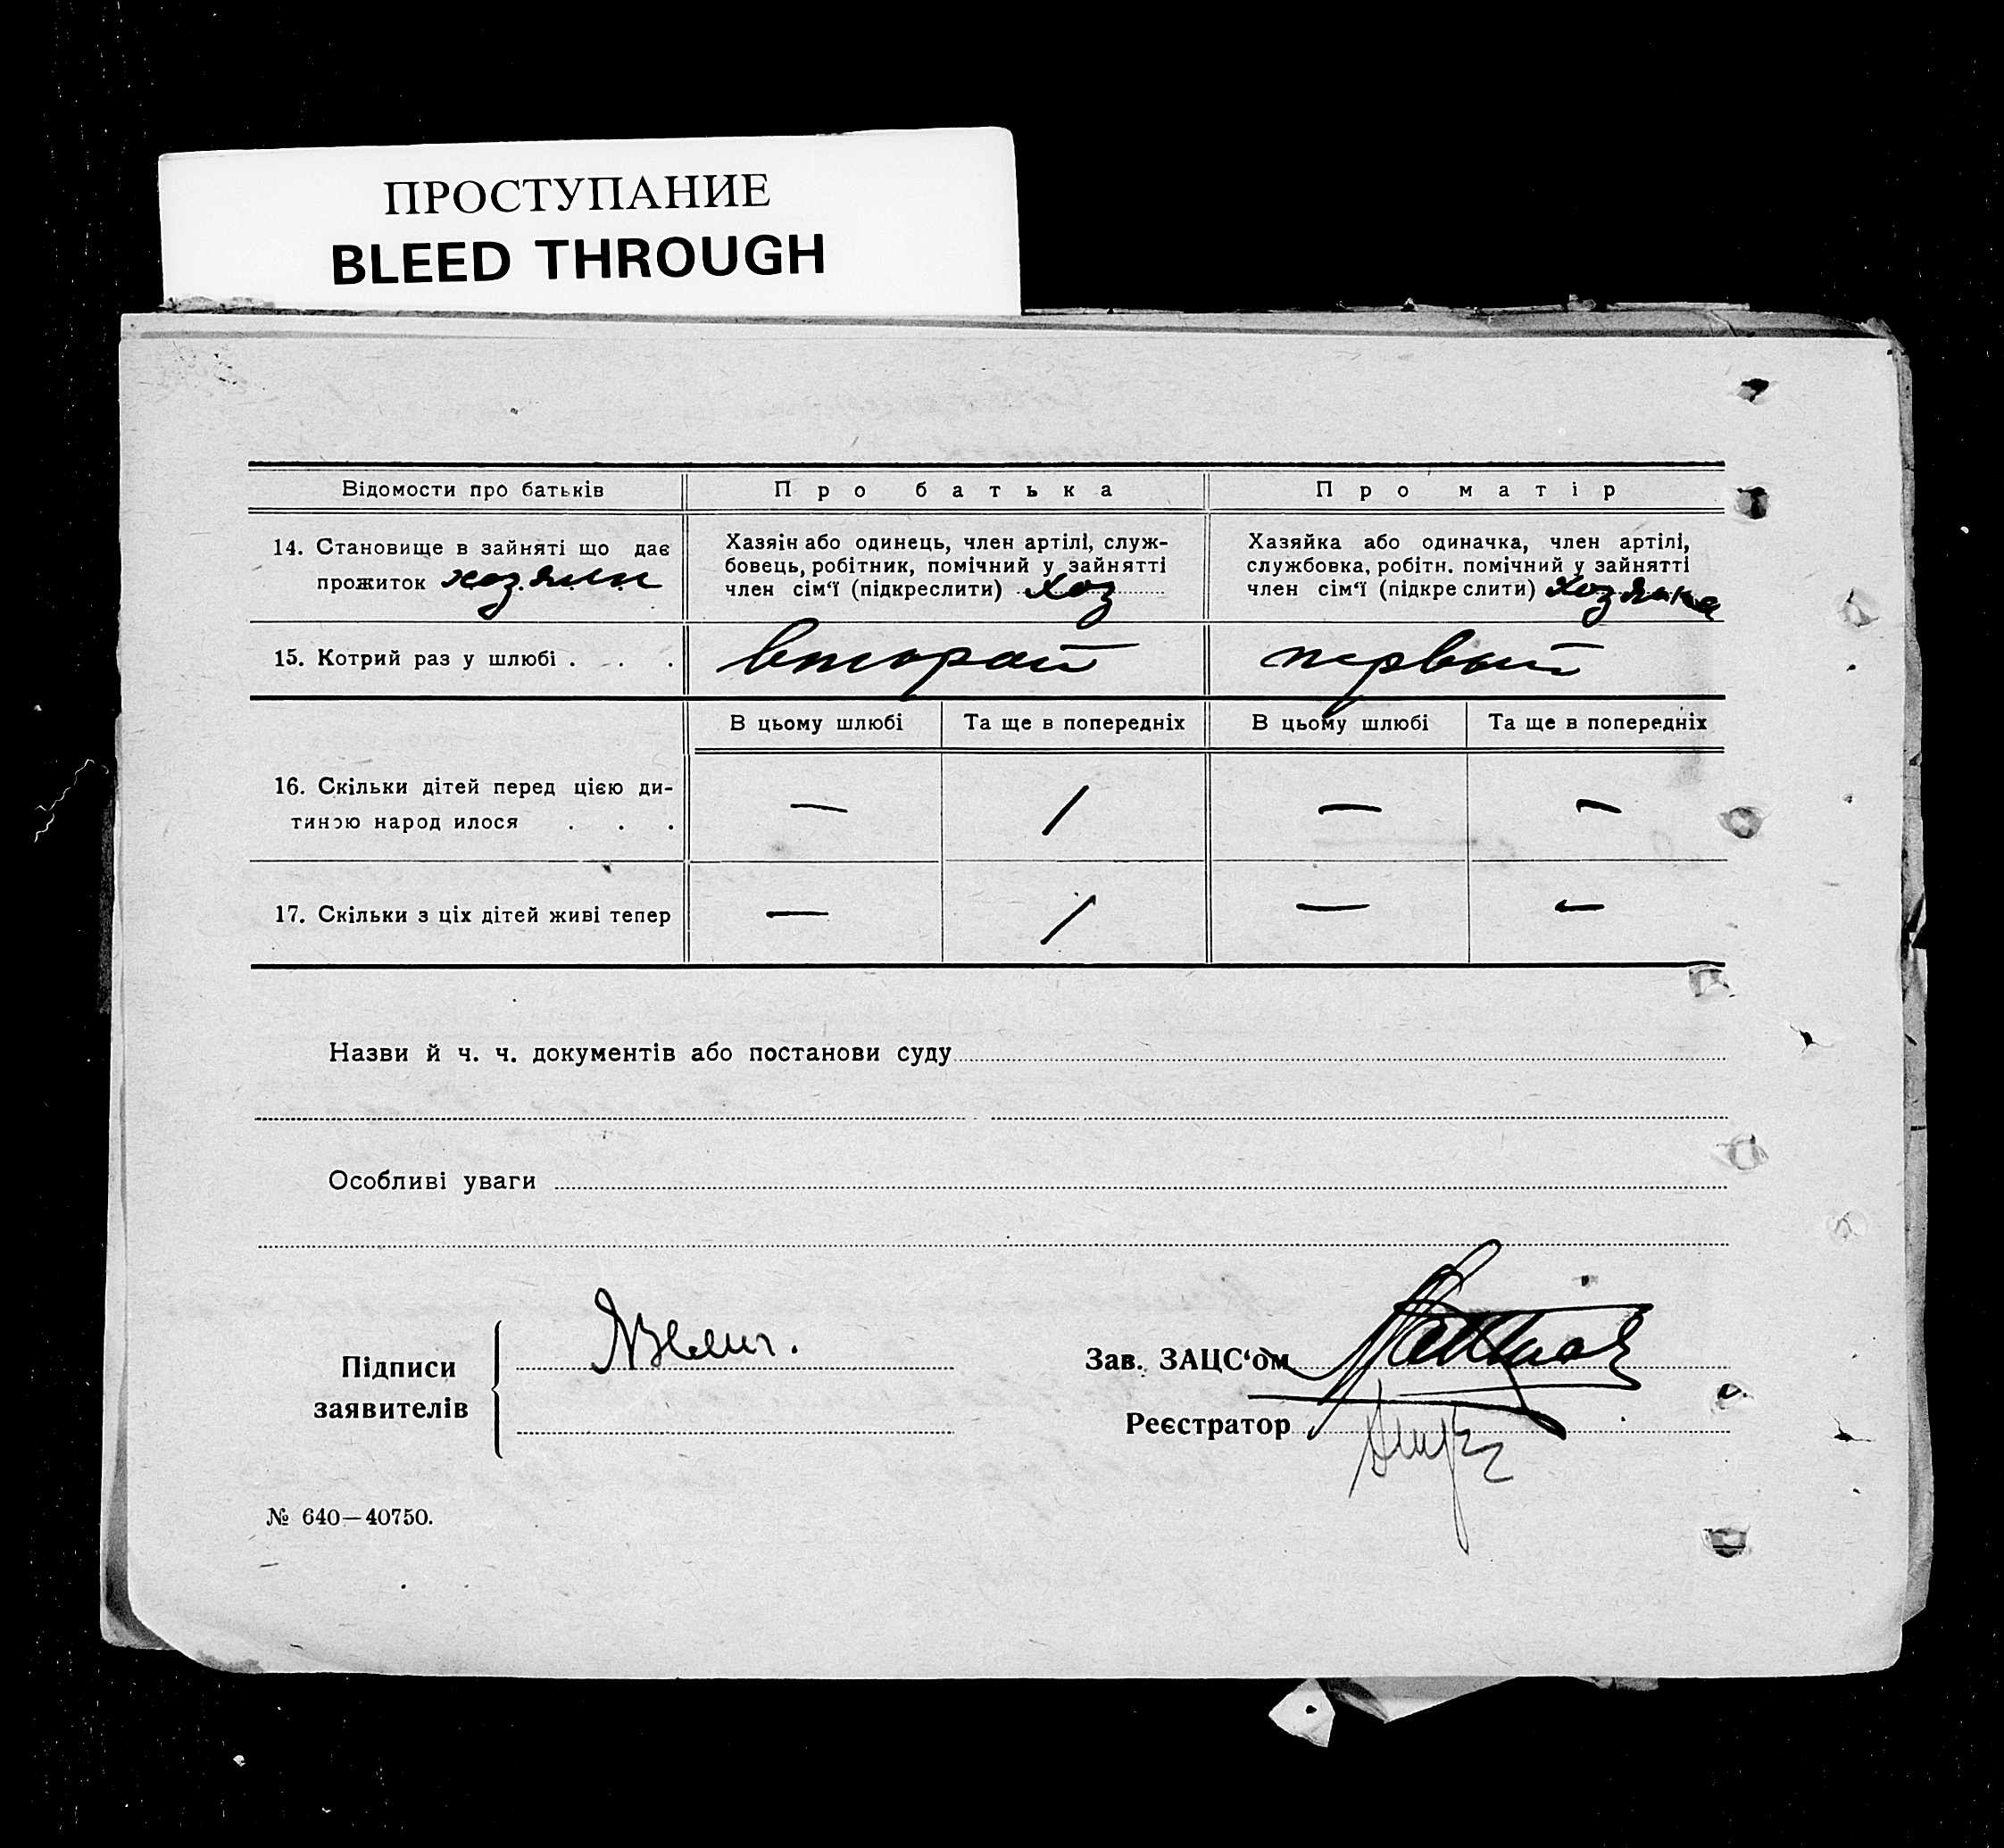 ПРОСТУПАНИЕ
BLEED THROUGH
Відомости про батьків
Про батька
Про матір
14. Становище в зайняті що дає
прожиток хозяин
Хазяін або одинець, член артілі, служ-
бовець, робітник, помічний у зайнятті
член сім‘ї (підкреслити) хоз
Хазяйка або одиначка, член артілі,
службовка, робітн. помічний у зайнятті
член сім‘ї (підкре слити) хозяйка
15. Котрий раз у шлюбі . . .
второй
первый
В цьому шлюбі
Та ще в попередніх
В цьому шлюбі
Та ще в попередніх
16. Скільки дітей перед цією ди-
тиною народ илося . . .
— 1 — —
17. Скільки з ціх дітей живі тепер
— 1 — —
Назви й ч. ч. документів або постанови суду
Особливі уваги
Підписи
заявителів
Зав. ЗАЦС‘ом
Реєстратор
№ 640—40750.